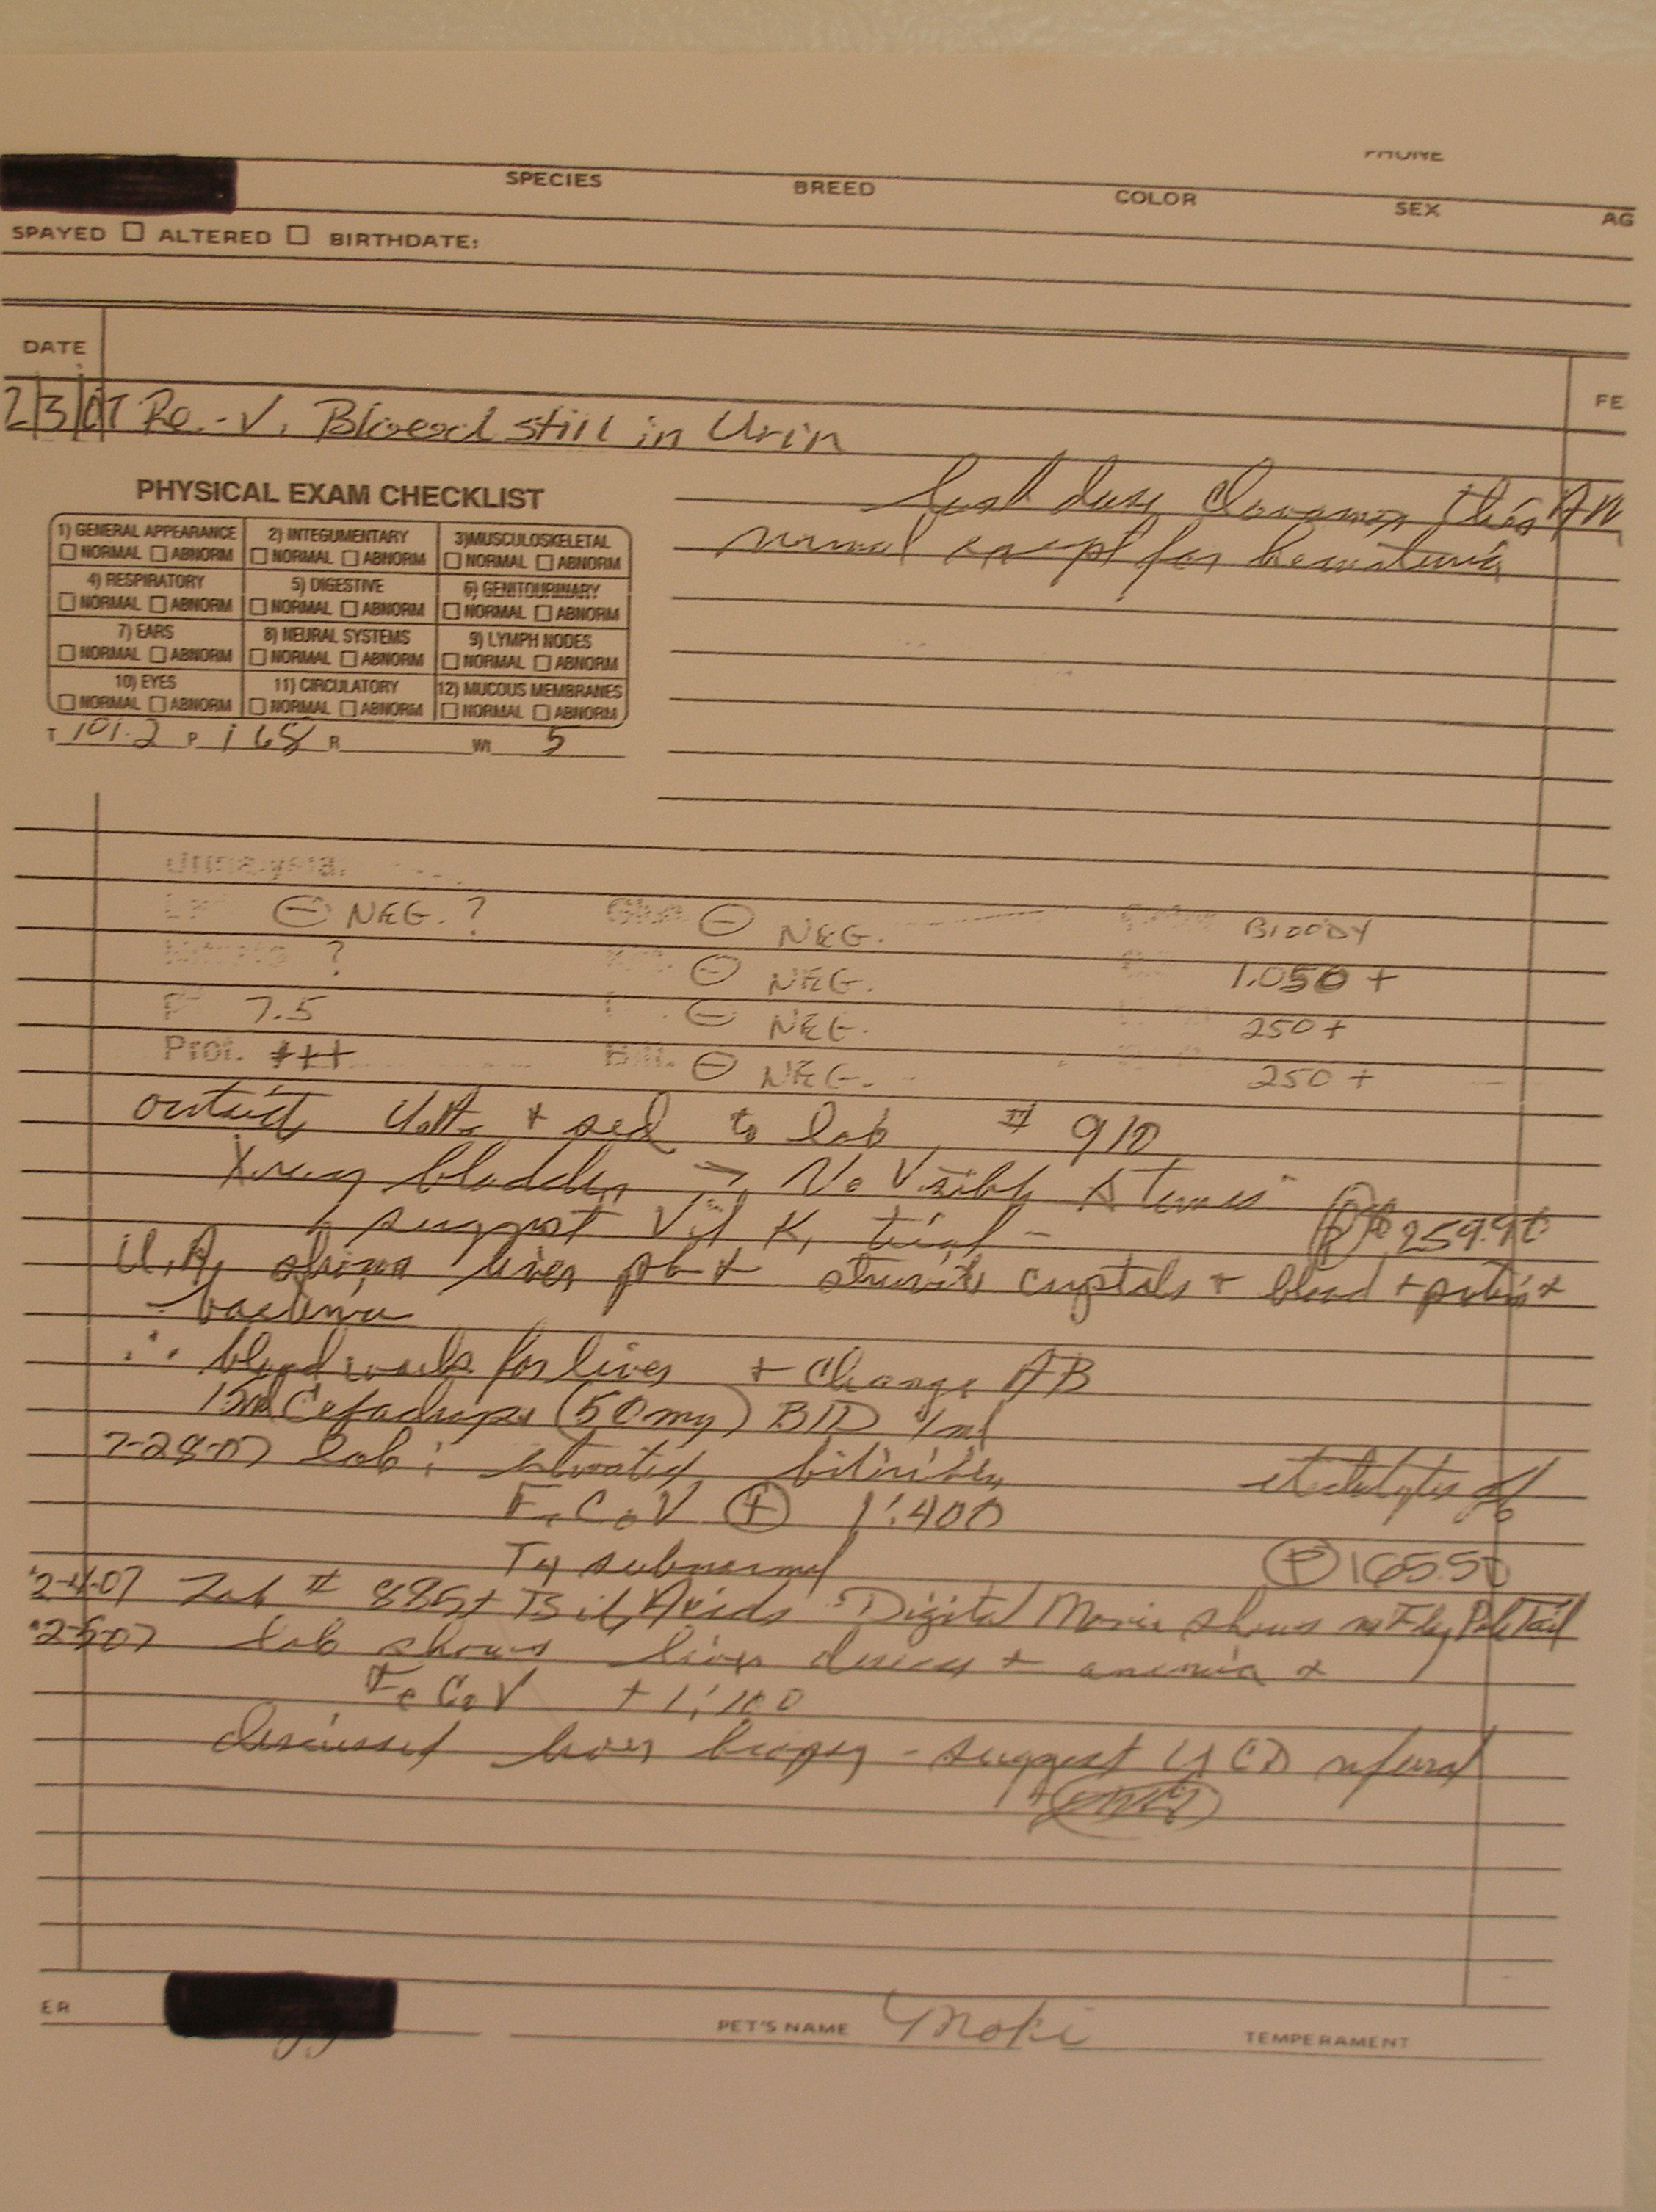 SPECIES BREED COLOR SEX AG
SPAYED ☐ ALTERED ☐ BIRTHDATE:
DATE
FE
2/3/07 Re-V. Blood still in Urin
last dose Clavamox this AM
normal except for hematuria
PHYSICAL EXAM CHECKLIST
1) GENERAL APPEARANCE 2) INTEGUMENTARY 3)MUSCULOSKELETAL
☐ NORMAL ☐ ABNORM ☐ NORMAL ☐ ABNORM ☐ NORMAL ☐ ABNORM
4) RESPIRATORY 5) DIGESTIVE 6) GENITOURINARY
☐ NORMAL ☐ ABNORM ☐ NORMAL ☐ ABNORM ☐ NORMAL ☐ ABNORM
7) EARS 8) NEURAL SYSTEMS 9) LYMPH NODES
☐ NORMAL ☐ ABNORM ☐ NORMAL ☐ ABNORM ☐ NORMAL ☐ ABNORM
10) EYES 11) CIRCULATORY 12) MUCOUS MEMBRANES
☐ NORMAL ☐ ABNORM ☐ NORMAL ☐ ABNORM ☐ NORMAL ☐ ABNORM
T 101.2 P 168 R Wt 5
Urinalysis.
⊖ NEG. ? Gluc. ⊖ NEG. BLOODY
? ⊖ NEG. 1.050 +
7.5 ⊖ NEG. 250 +
Prot. +++ Bili. ⊖ NEG. 250 +
+ sed to lab # 910
Xray bladder → No Visible Stones
suggest Vit K, trial - 259.90
U.A. shows liver + struvite crystals + blood + protein +
bacteria
∴ blood work for liver + change AB
15ml Cefadrops (50mg) BID 1ml
2-28-07 lab: elevated bilirubin electrolytes
FeCoV ⊕ 1:400
T4 subnormal Ⓟ 165.50
2-4-07 Lab # 885+ Bile Acids Digital Movie shows
lab shows liver disease + anemia +
FeCoV + 1:100
discussed liver biopsy - suggest UCD referal
ER
PET'S NAME Moki TEMPERAMENT